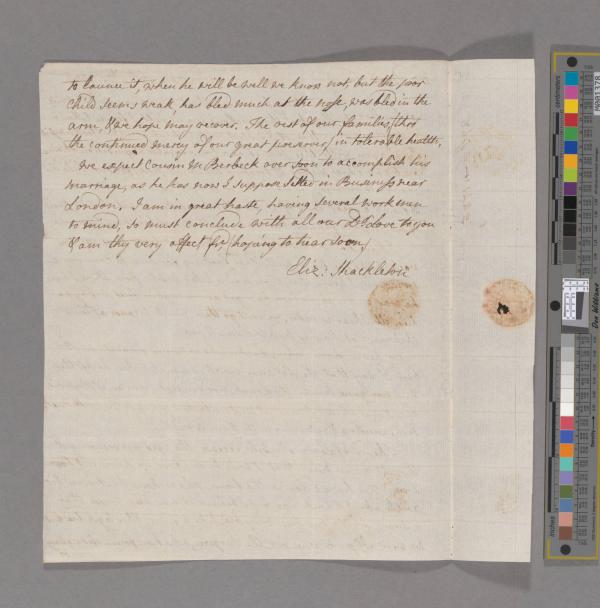 to launce it, when he will be well we know not, but the poor
child seems weak, has bled much at the nose, was bled in the
arm, & we hope may recover. The rest of our families, thro'
the continued mercy of our great preserver, in tolerable health,
we expect Cousin M Berbeck over soon to accomplish his
marriage, as he has now I suppose setled in Business near
London. I am in great haste, having several work men
to mind, so must conclude with all our Dr love to you
& am thy very affect fr, (hoping to hear soon)
Eliz: Shackleton
centimeters
MA01378
Don Williams
inches
Density